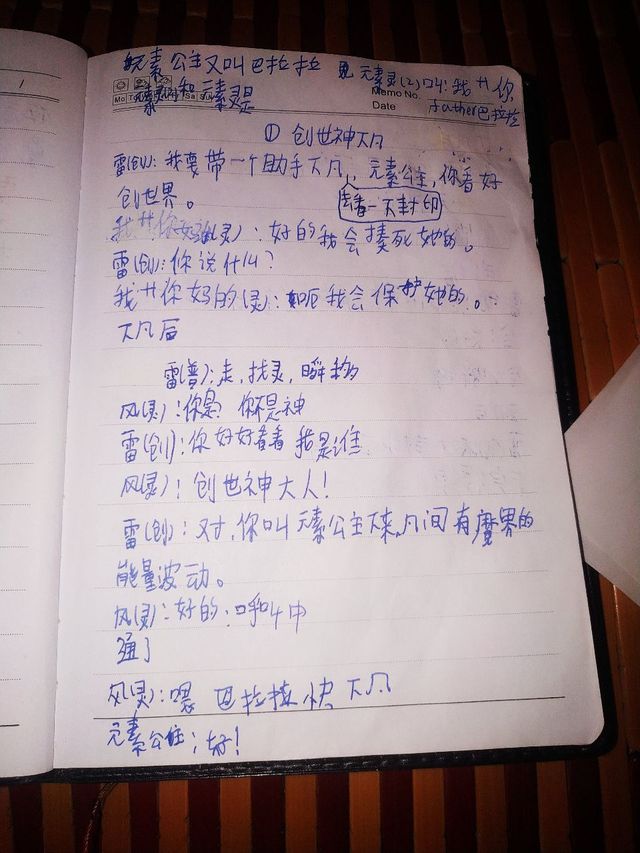 元素公主又叫巴拉拉
元素灵(2)叫:我艹你
father巴拉拉
素灵是
Mo Sa Su
Memo No.
Date
① 创世神下凡
雷(创):我要带一个助手下凡,元素公主,你看好
创世界。
一下封印
我艹你 (灵):好的我会揍死她的。
雷(创):你说什么?
我艹你妈的(灵):如厄我会保护她的。
下凡后
雷(普):走,找灵,瞬移
风(灵):你是?你不是神
雷(创):你好好看看我是谁
风(灵):创世神大人!
雷(创):对,你叫元素公主下来,凡间有魔界的
能量波动。
风(灵):好的,呼叫中
通了
风(灵):喂 巴拉拉 快下凡
元素公主:好!